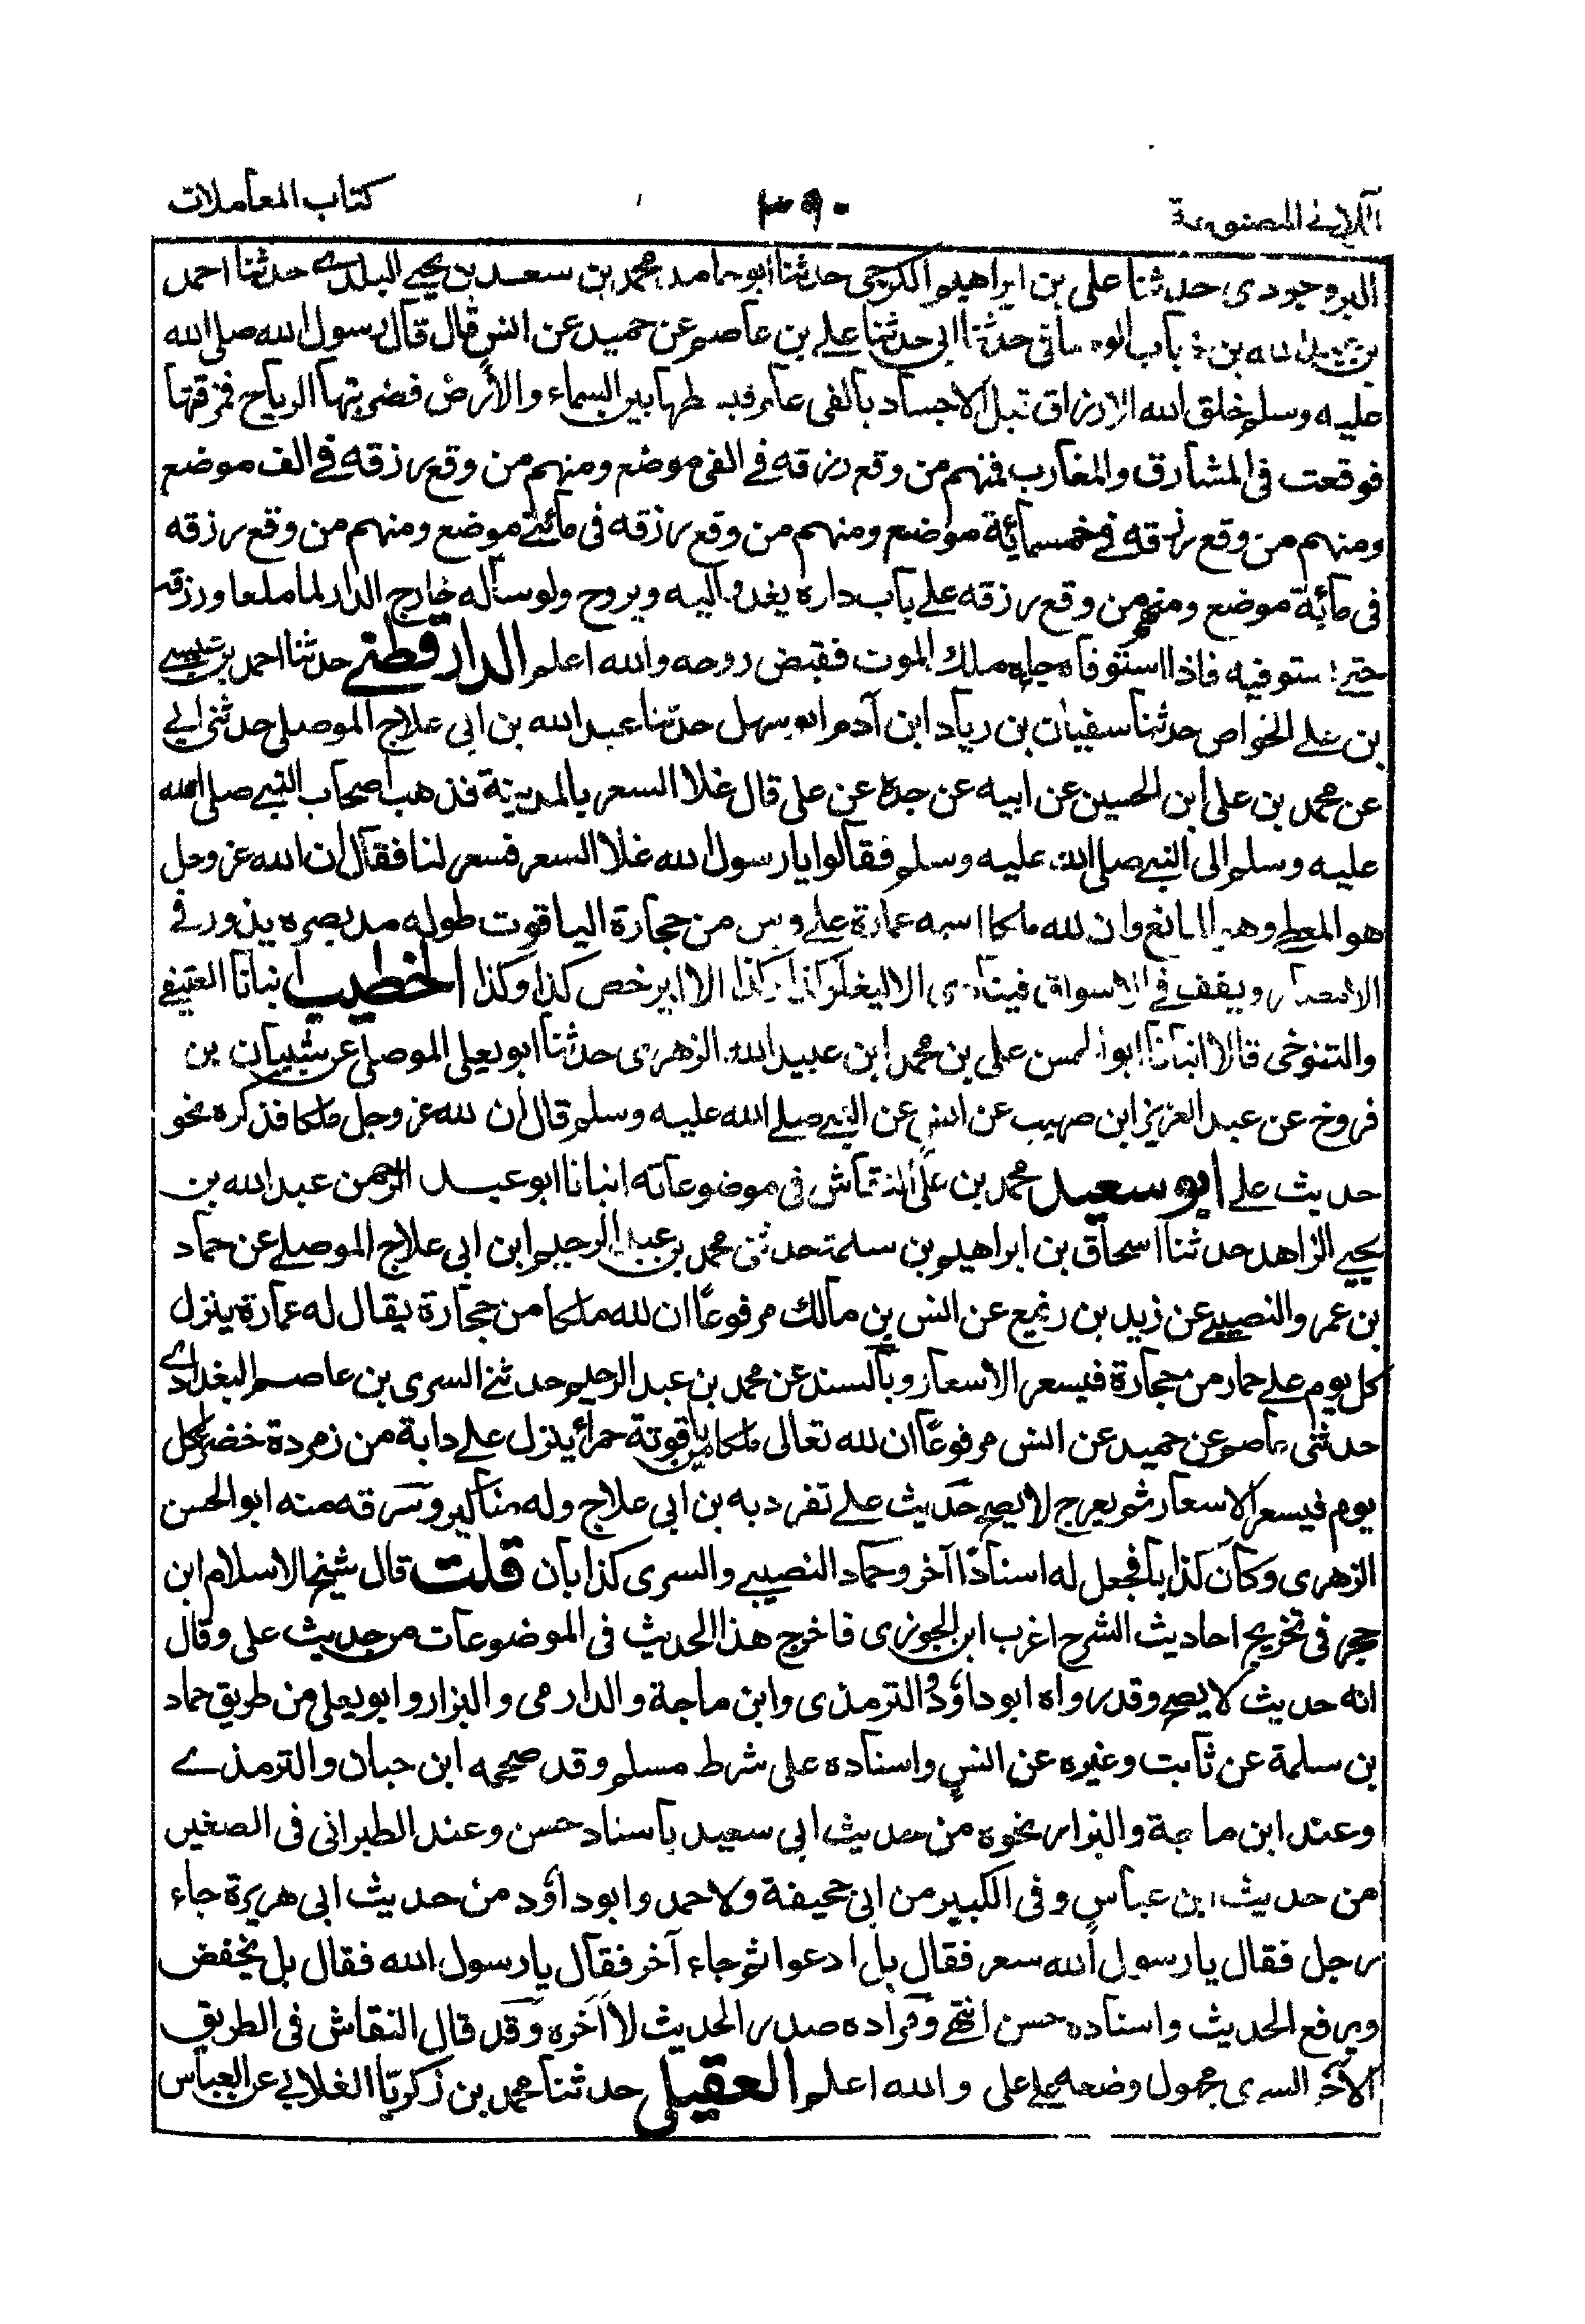 اللآلئ المصنوعة ٣٩٠ كتاب المعاملات
البروجردى حدثنا على بن ابراهيم الكرجى حدثنا ابو حامد محمد بن سعد بن يحيے البلدے حدثنا احمد
بن عبد الله بن حدثنا ابى حدثنا علے بن عاصم عن حميد عن انس قال قال رسول الله صلے الله
عليه وسلم خلق الله الارزاق قبل الاجساد بالفى عام فبسطها بين السماء والأرض فضربتها الرياح فمزقتها
فوقعت فى المشارق والمغارب فمنهم من وقع رزقه فے الفى موضع ومنهم من وقع رزقه فے الف موضع
ومنهم من وقع رزقه فے خمسمائة موضع ومنهم من وقع رزقه فى مائتے موضع ومنهم من وقع رزقه
فى مائة موضع ومنهم من وقع رزقه علے باب داره يغدو اليه ويروح ولو سأله خارج الدار لما ورزقه
حتے يستوفيه فاذا استوفاه جاءه ملك الموت فقبض روحه والله اعلم الدارقطنے حدثنا احمد بن عيسے
بن علے الخواص حدثنا سفيان بن رياد ابن آدم ابو سهل حدثنا عبد الله بن ابى علاج الموصلى حدثنى ابے
عن محمد بن على ابن الحسين عن ابيه عن جده عن على قال غلا السعر بالمدينة فذهب اصحاب النبے صلے الله
عليه وسلم الى النبے صلے الله عليه وسلم فقالوا يا رسول الله غلا السعر فسعر لنا فقال ان الله عز وجل
هو المعطے وهو المانع وان لله ملكا اسمه عمارة علے فرس من حجارة الياقوت طوله مد بصره يدور فے
الامصار ويقف فے الاسواق فينادى الا ليغل كذا وكذا الا ليرخص كذا وكذا الخطيب انبانا العتيقے
والتنوخى قالا انبانا ابو الحسن على بن محمد ابن عبيد الله الزهرى حدثنا ابو يعلى الموصلى عن شيبان بن
فروخ عن عبد العزيز ابن صهيب عن انس عن النبے صلے الله عليه وسلم قال ان لله عز وجل ملكا فذكره نحو
حديث علے ابو سعيد محمد بن على النقاش فى موضوعاته انبانا ابو عبد الرحمن عبد الله بن
يحيے الزاهد حدثنا اسحاق بن ابراهيم بن سلمة حدثنى محمد بن عبد الرحيم ابن ابى علاج الموصلے عن حماد
بن عمرو النصيبے عن زيد بن رفيع عن انس بن مالك مرفوعًا ان لله ملكا من حجارة يقال له عمارة ينزل
كل يوم علے حمار من حجارة فيسعر الاسعار وبالسند عن محمد بن عبد الرحيم حدثنے السرى بن عاصم البغدادے
حدثنى عاصم عن حميد عن انس مرفوعًا ان لله تعالى ملكا من ياقوتة حمراء ينزل علے دابة من زمردة خضراء كل
يوم فيسعر الاسعار ثم يعرج لا يصح حديث علے تفرد به بن ابى علاج وله مناكير وسرقه منه ابو الحسن
الزهرى وكان كذابا فجعل له اسنادًا آخر وحماد النصيبے والسرى كذابان قلت قال شيخ الاسلام ابن
حجر فى تخريج احاديث الشرح اغرب ابن الجوزى فاخرج هذا الحديث فى الموضوعات من حديث على وقال
انه حديث لا يصح وقد رواه ابو داؤد والترمذى وابن ماجة والدارمى والبزار وابو يعلى من طريق حماد
بن سلمة عن ثابت وغيره عن انس واسناده على شرط مسلم وقد صححه ابن حبان والترمذے
وعند ابن ماجة والبزار نحوه من حديث ابى سعيد باسناد حسن وعند الطبرانى فى الصغير
من حديث ابن عباس وفى الكبير من ابى جحيفة ولاحمد وابو داؤد من حديث ابى هريرة جاء
رجل فقال يا رسول الله سعر فقال بل ادعوا ثم جاء آخر فقال يا رسول الله فقال بل يخفض
ويرفع الحديث واسناده حسن انتهے ومراده صدر الحديث لا آخره وقد قال النقاش فى الطريق
الآخر السرى مجهول وضعه على والله اعلم العقيلى حدثنا محمد بن زكريا الغلابى عن العباس